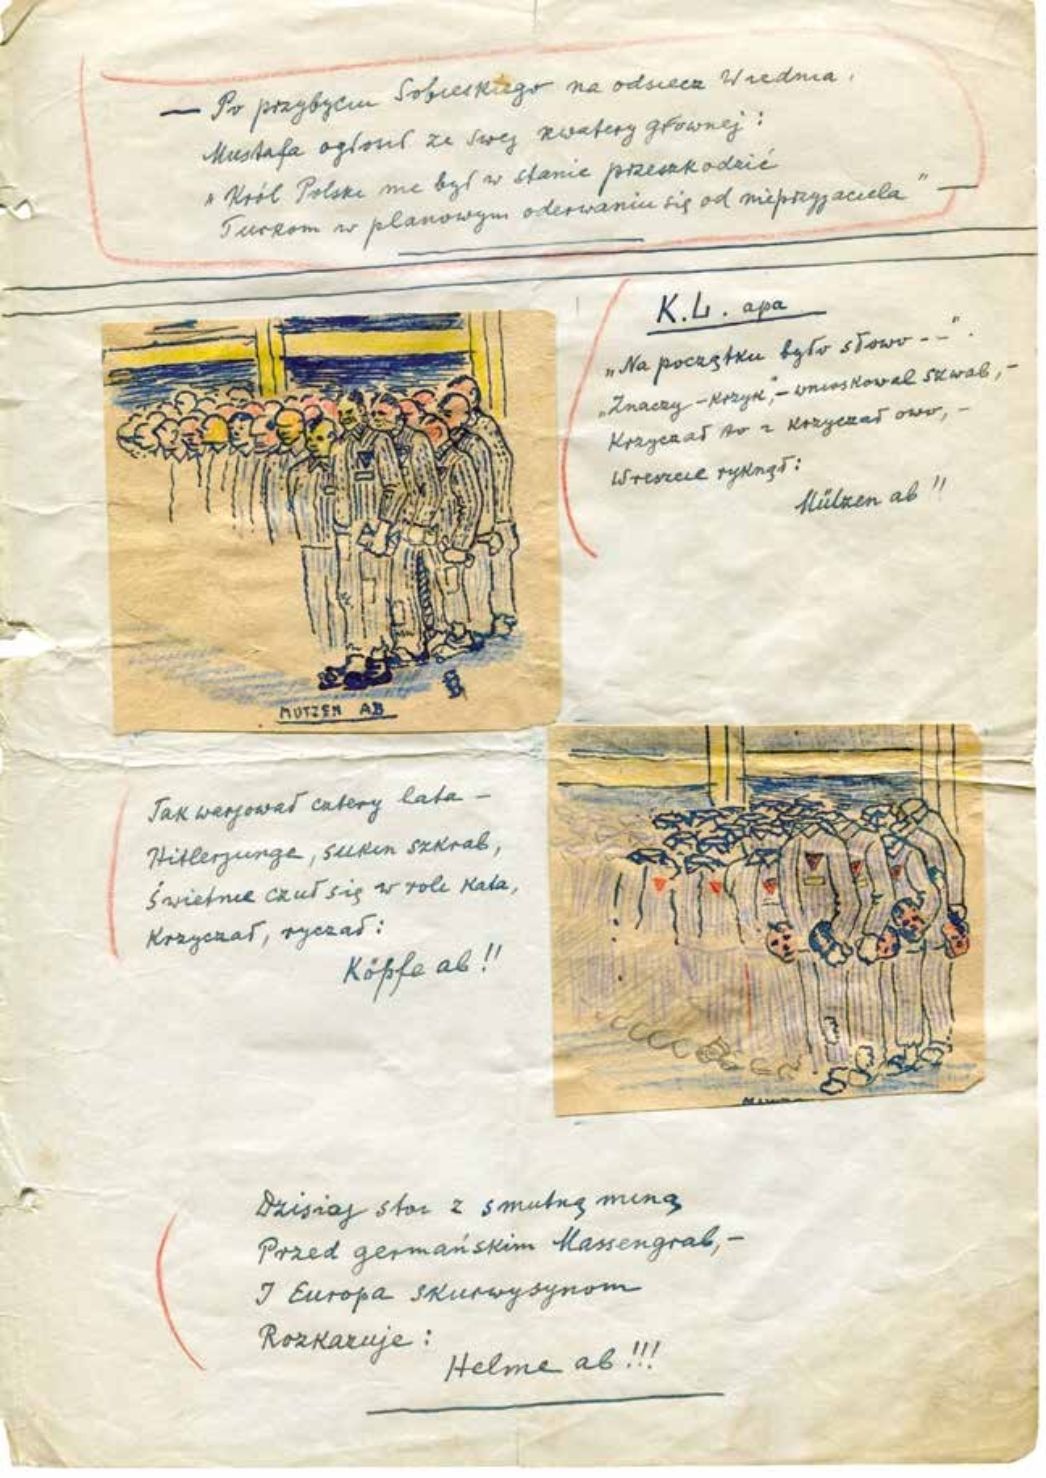 — Po przybyciu Sobieskiego na odsiecz Wiednia,
Mustafa ogłosił ze swej kwatery głównej:
„Król Polski nie był w stanie przeszkodzić
Turkom w planowym oderwaniu się od nieprzyjaciela” —
K.L. apa
„Na początku było słowo - -”.
„Znaczy - krzyk”, - wnioskował szwab, -
Krzyczał to i krzyczał owo, -
Wreszcie ryknął:
Mützen ab!!
MUTZEN AB
Tak werjował cztery lata -
Hitlerjunge, sukin szkrab,
Świetnie czuł się w roli kata,
Krzyczał, ryczał:
Köpfe ab!!
Dzisiaj stoi z smutną miną
Przed germańskim Massengrab, -
I Europa skurwysynom
Rozkazuje:
Helme ab!!!